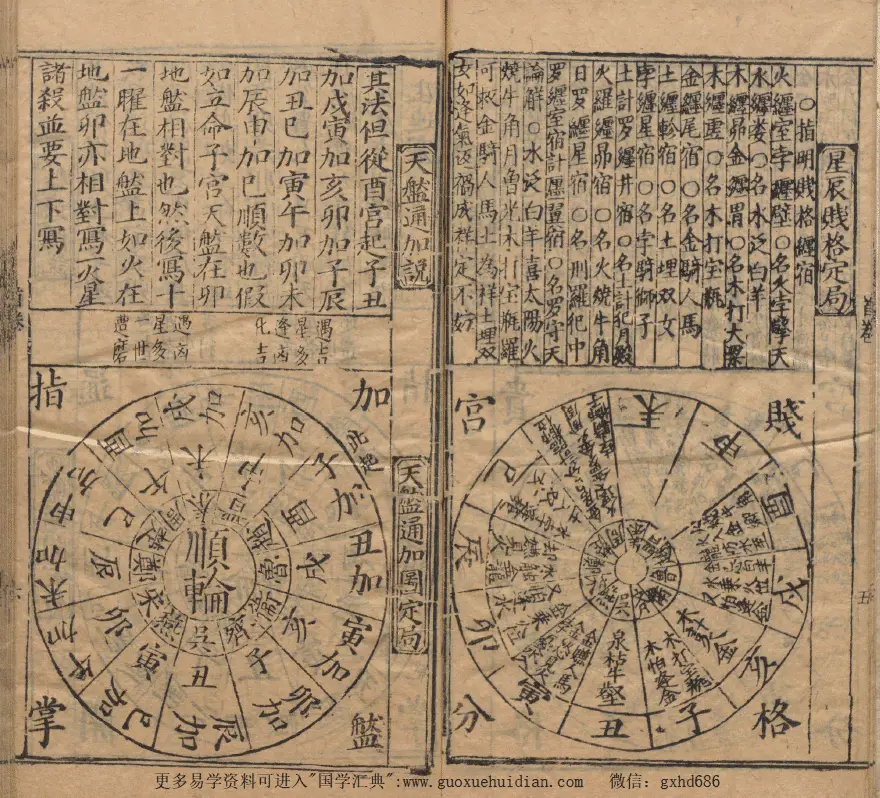 星辰賤格定局
○指明賤格躔宿
火纏室孛纏壁○名火孛擎天
水纏娄○名水泛白羊
木纏昴金纏胃○名木打大梁
木纏虛○名木打宝瓶
金纏尾宿○名金騎人馬
土纏軫宿○名土埋双女
孛纏星宿○名孛騎獅子
土計罗纏井宿○名土計犯月殿
火羅纏昴宿○名火燒牛角
日罗纏星宿○名刑羅犯中
罗纏室宿計纏宿○名罗守天
論觧○水泛白羊喜太陽火
燒牛角月魯光木打宝瓶羅
可救金騎人馬土為祥土埋双
女如逢氣返禍成祥定不妨
賤格
宮分
未
申
酉
戌
亥
子
丑
寅
卯
辰
巳
木打宝瓶
木怕逢金
泉枯牛壑
首卷
五
天盤通加說
其法但從酉宮起子丑
加戌寅加亥卯加子辰
加丑巳加寅午加卯未
加辰申加巳順数也假
如立命子宮天盤在卯
地盤相對也然後寫十
一曜在地盤上如火在
地盤卯亦相對寫火星
諸殺並要上下寫
遇吉
星多
逢凶
化吉
遇凶
星多
一世
遭磨
天盤通加圖定局
加盤
指掌
順輪
子加
丑加
寅加
卯加
辰加
巳加
午加
未加
申加
酉加
戌加
亥加
此起
酉
戌
亥
子
丑
寅
卯
辰
巳
午
未
申
趙
魯
衛
齊
吳
燕
宋
更多易学资料可进入"国学汇典":www.guoxuehuidian.com 微信：gxhd686